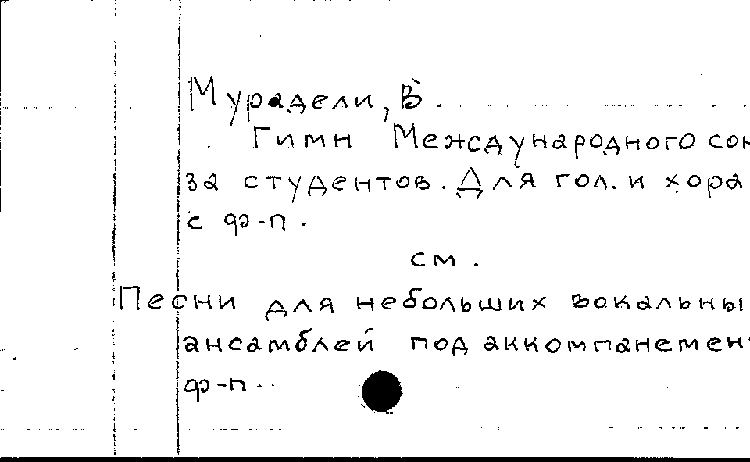 Мурадели, В.
Гимн Международного сою
за студентов. Для гол. и хора
с ф-п.
см.
Песни для небольших вокальны
ансамблей под аккомпанемен
ф-п.